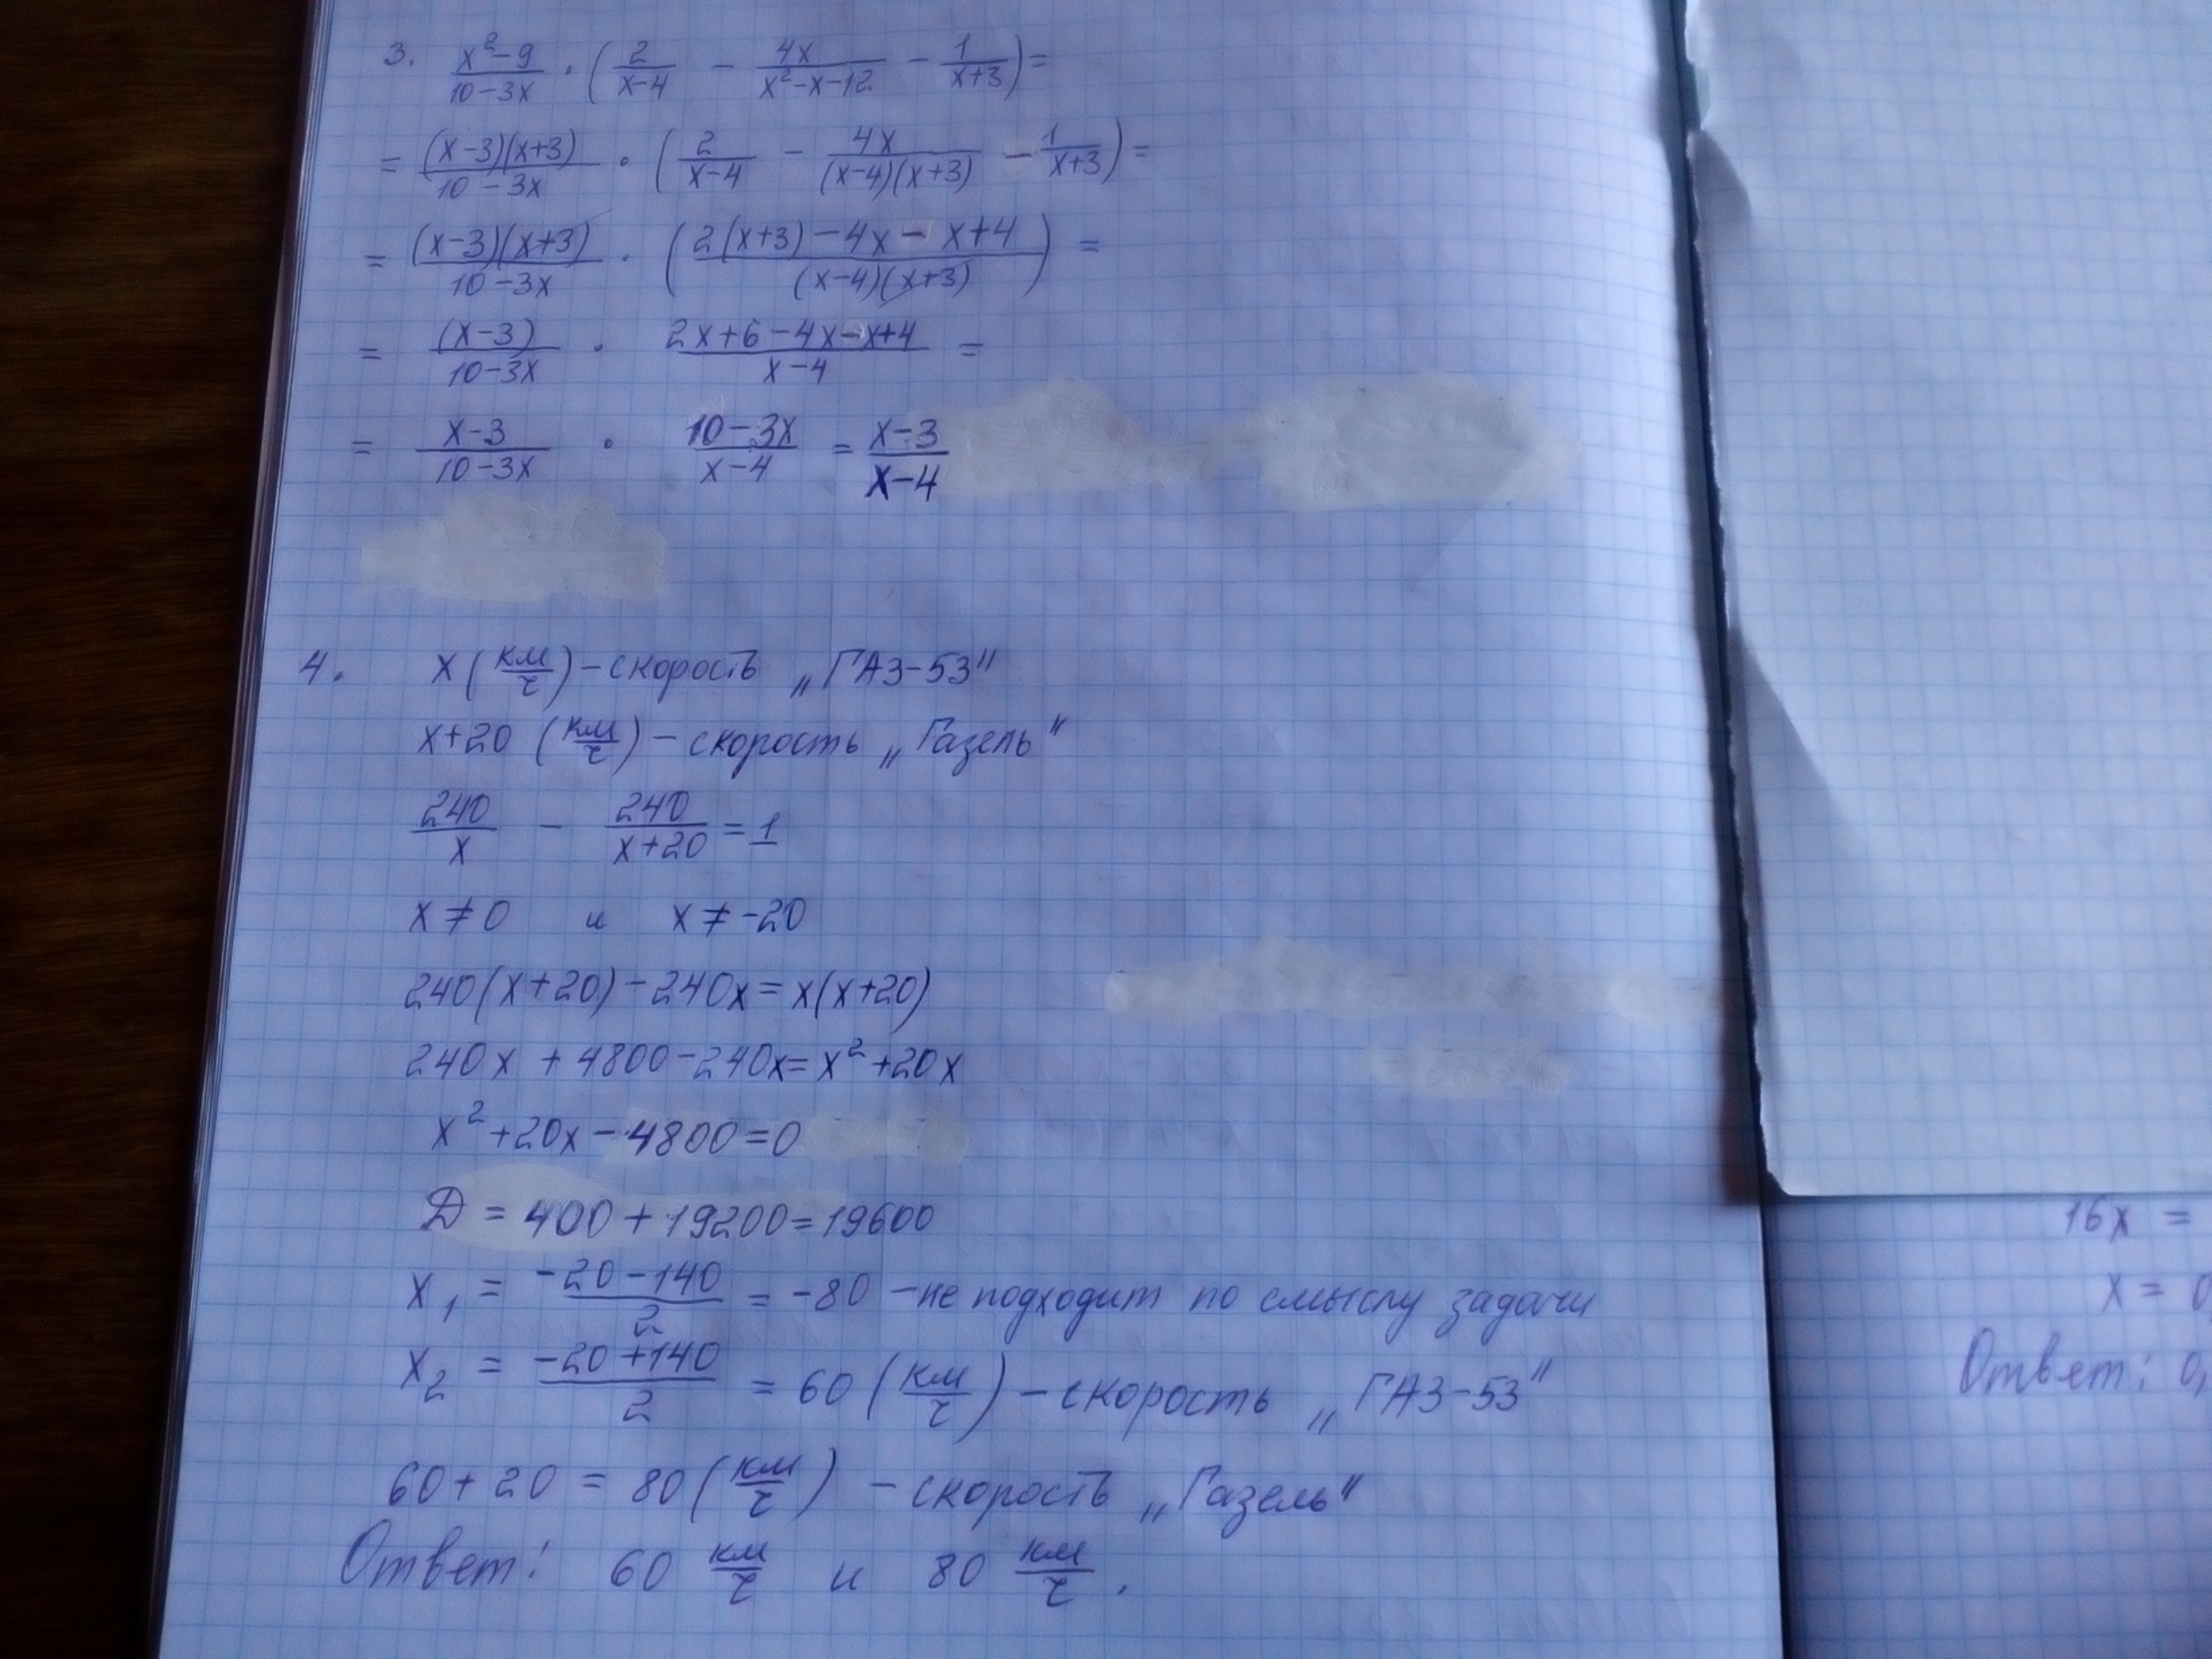 3. (x²-9)/(10-3x) · (2/(x-4) - 4x/(x²-x-12) - 1/(x+3)) =
= ((x-3)(x+3))/(10-3x) · (2/(x-4) - 4x/((x-4)(x+3)) - 1/(x+3)) =
= ((x-3)(x+3))/(10-3x) · ((2(x+3)-4x-x+4)/((x-4)(x+3))) =
= (x-3)/(10-3x) · (2x+6-4x-x+4)/(x-4) =
= (x-3)/(10-3x) · (10-3x)/(x-4) = (x-3)/(x-4)
4. x (км/ч) - скорость „ГАЗ-53"
x+20 (км/ч) - скорость „Газель"
240/x - 240/(x+20) = 1
x ≠ 0 и x ≠ -20
240(x+20)-240x=x(x+20)
240x+4800-240x=x²+20x
x²+20x-4800=0
Д = 400+19200=19600
x₁ = (-20-140)/2 = -80 - не подходит по смыслу задачи
x₂ = (-20+140)/2 = 60 (км/ч) - скорость „ГАЗ-53"
60+20 = 80 (км/ч) - скорость „Газель"
Ответ: 60 км/ч и 80 км/ч.
16x =
x = 0
Ответ: 0,